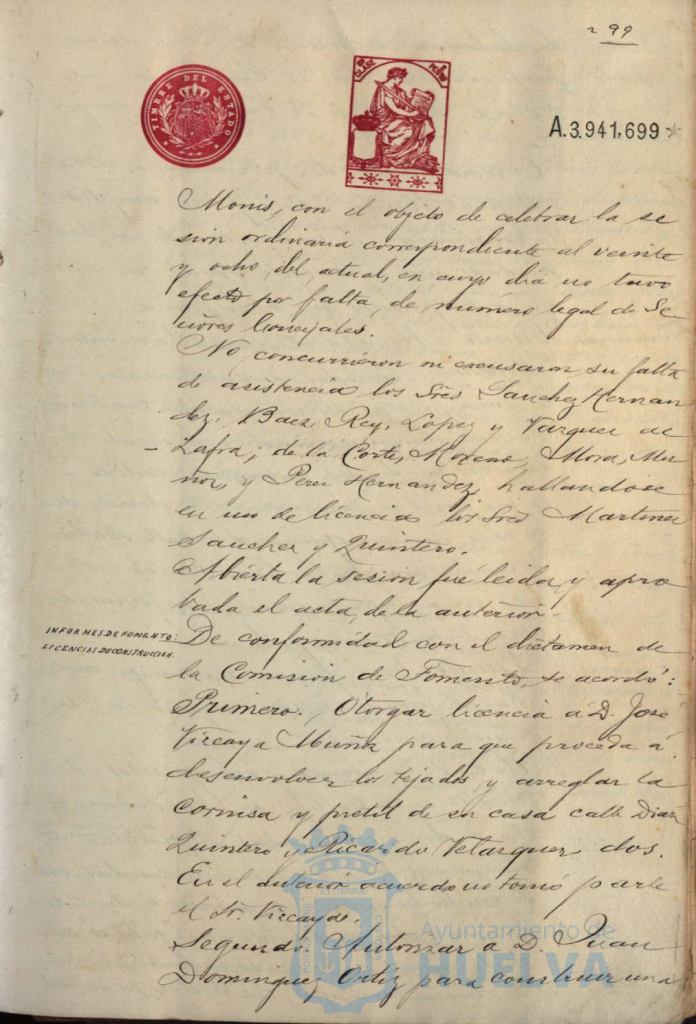 299
TIMBRE DEL ESTADO
A.3.941,699
Monis, con el objeto de celebrar la se
sion ordinaria correspondiente al veinte
y ocho del actual, en cuyo dia no tuvo
efecto por falta de número legal de Se-
ñores Concejales.
No concurrieron ni excusaron su falta
de asistencia los Sres Sanchez Hernan
dez, Baez, Rey, Lopez y Vazquez de
Zafra; de la Corte, Moreno, Mora, Mu-
ñoz, y Perez Hernandez, hallandose
en uso de licencia los Sres Martinez
Sanchez y Quintero.
Abierta la sesion fué leida y apro
bada el acta de la anterior.
INFORMES DE FOMENTO:
LICENCIAS DE CONSTRUCCION.
De conformidad con el dictamen de
la Comision de Fomento, se acordó:
Primero. Otorgar licencia á D. José
Vizcaya Muñiz para que proceda á
desenvolver los tejados y arreglar la
cornisa y pretil de su casa calle Diaz
Quintero y Ricardo Velazquez dos.
En el anterior acuerdo no tomó parte
el Sr. Vizcayo.
Segundo. Autorizar a D. Juan
Dominguez Ortiz para construir una
Ayuntamiento de
HUELVA